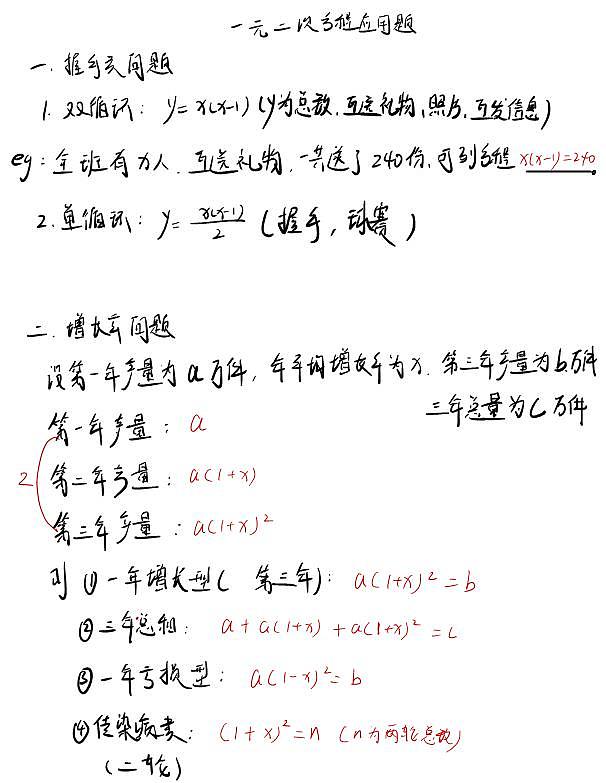 一元二次方程应用题
一. 握手类问题
1. 双循环: y = x(x-1) (y为总数, 互送礼物, 照片, 互发信息)
eg: 全班有x人, 互送礼物, 一共送了240份, 可列方程 x(x-1)=240.
2. 单循环: y = x(x-1)/2 (握手, 球赛)
二. 增长率问题
设第一年产量为a万件, 年平均增长率为x. 第三年产量为b万件
三年总量为C万件
第一年产量: a
第二年产量: a(1+x)
2
第三年产量: a(1+x)²
则 ① 一年增长型( 第三年): a(1+x)² = b
② 三年总和: a + a(1+x) + a(1+x)² = c
③ 一年亏损型: a(1-x)² = b
④ 传染病类: (1+x)² = n (n为两轮总数)
(二轮)